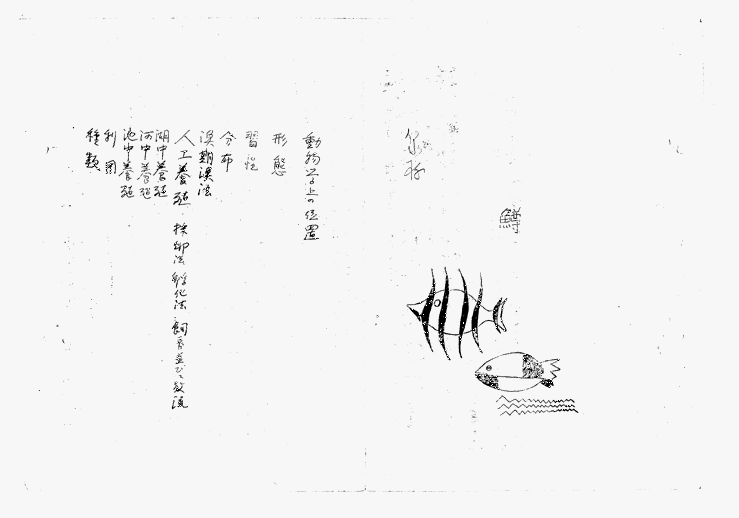 保存
鱒
動物学上の位置
形態
習性
分布
漁期漁法
人工養殖 採卵法 孵化法 飼育並びに放流
湖中養殖
河中養殖
池中養殖
利用
種類